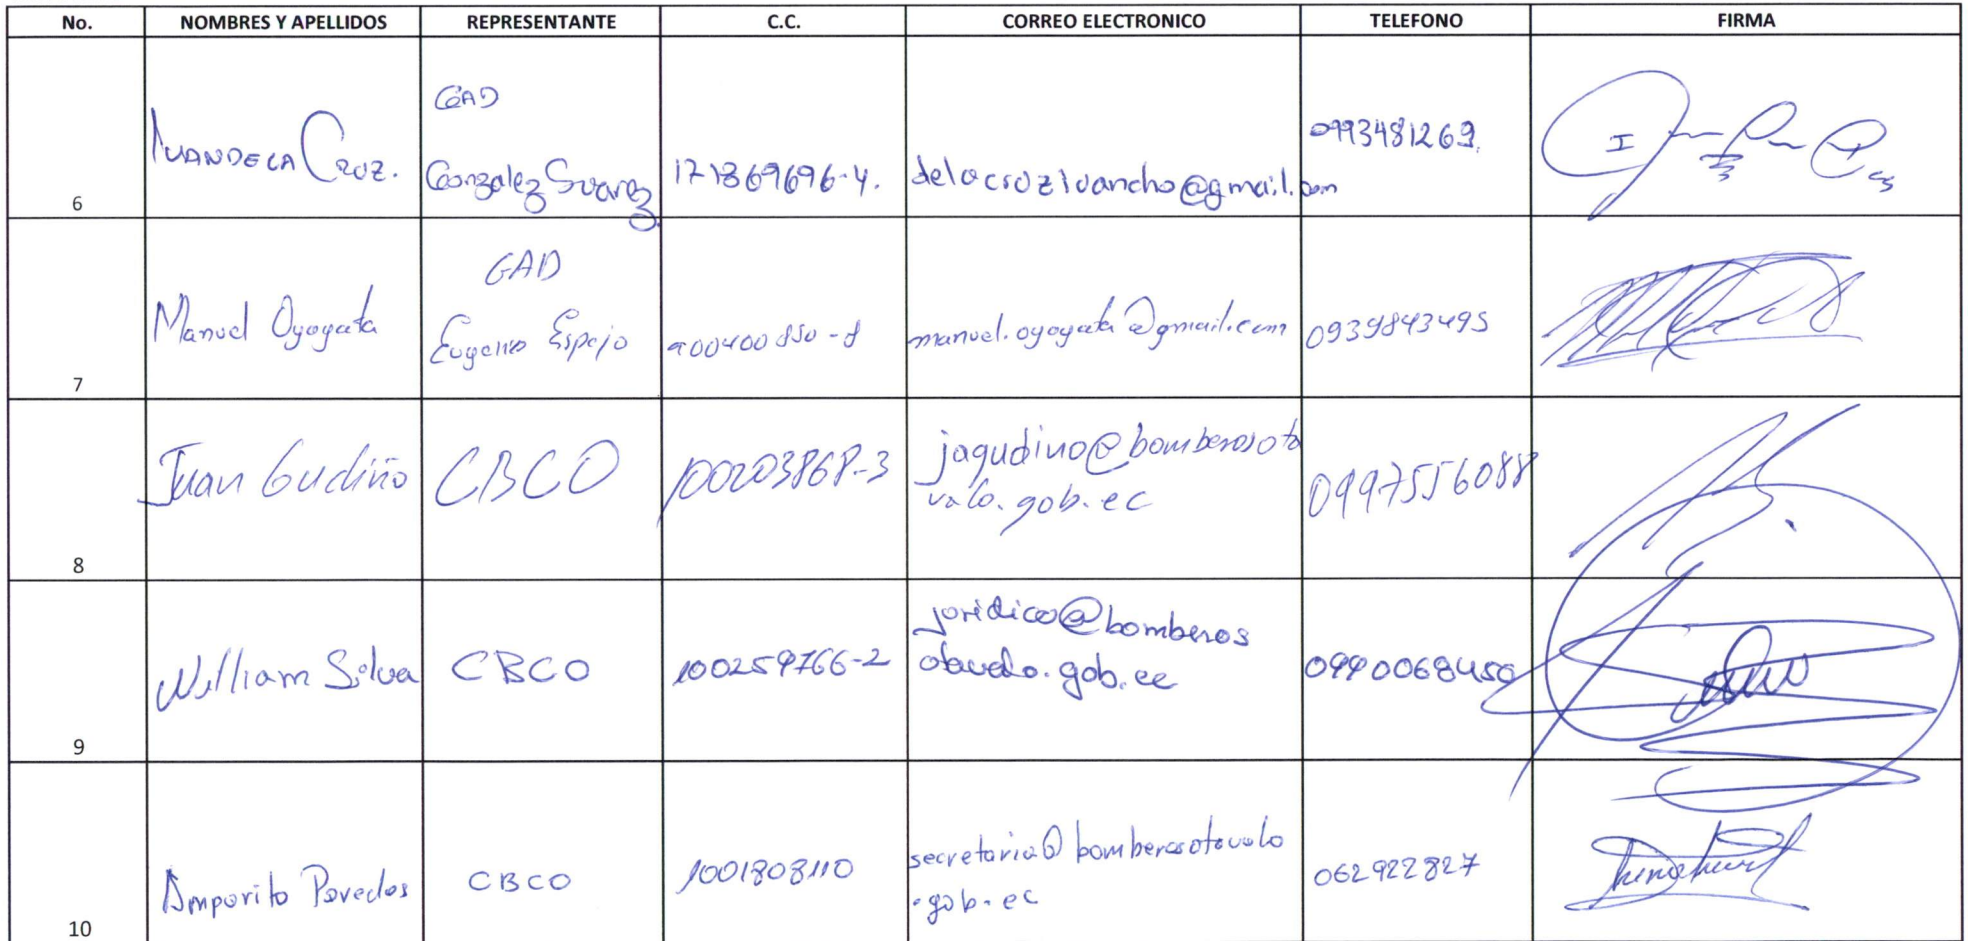 No. NOMBRES Y APELLIDOS REPRESENTANTE C.C. CORREO ELECTRONICO TELEFONO FIRMA
GAD
6 IVAN DE LA CRUZ. Gonzalez Suarez 171869696-4. delacrozivancho@gmail.com 0993481269.
GAD
7 Manuel Oyagata Eugenio Espejo manuel.oyagata@gmail.com 0939843495
8 Juan Gudiño CBCO 100203868-3 jagudino@bomberosota
valo.gob.ec 0997556088
9 William Silva CBCO 100259766-2 juridico@bomberos
otavalo.gob.ec 0990068450
10 Amparito Paredes CBCO 1001808110 secretaria@bomberosotavalo
.gob.ec 062922827